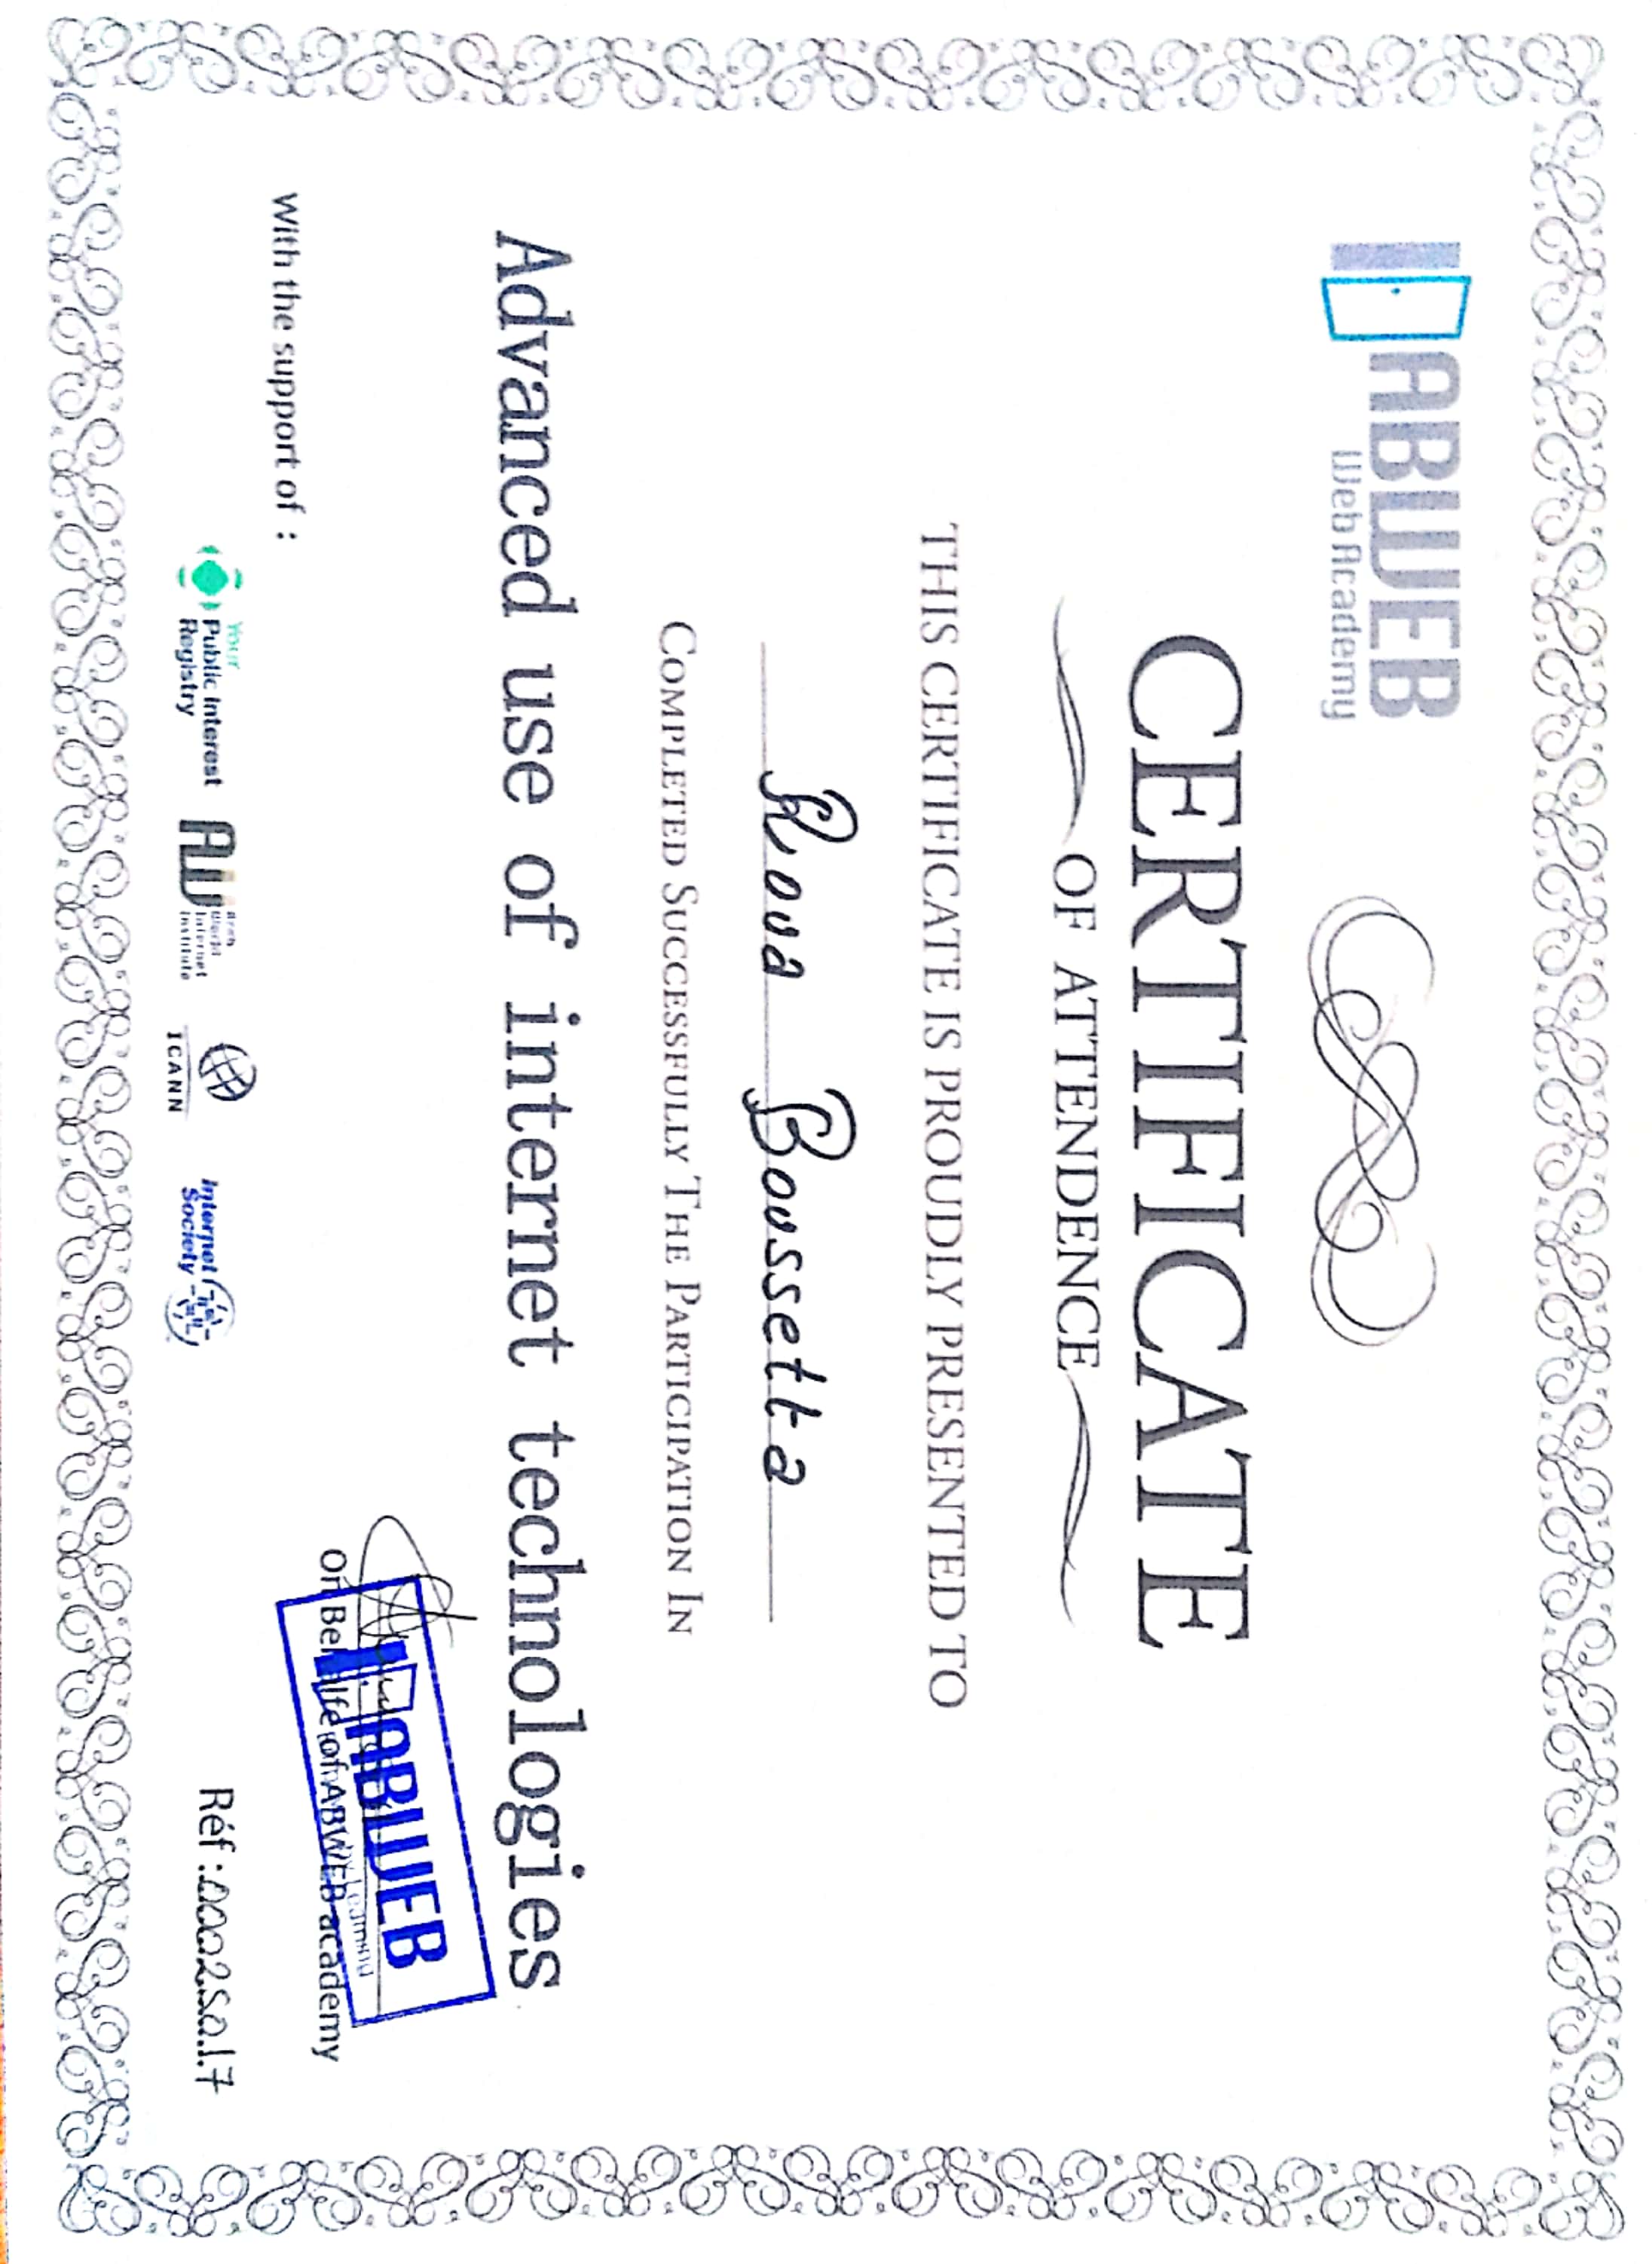 ABWEB
Web Academy
CERTIFICATE
OF ATTENDENCE
THIS CERTIFICATE IS PROUDLY PRESENTED TO
Roua Boussetta
COMPLETED SUCCESSFULLY THE PARTICIPATION IN
Advanced use of internet technologies
ABWEB
by Learning
On Behalfe of ABWEB academy
With the support of :
Your
Public Interest
Registry
Arab
World
Internet
Institute
ICANN
Internet
Society
Réf :